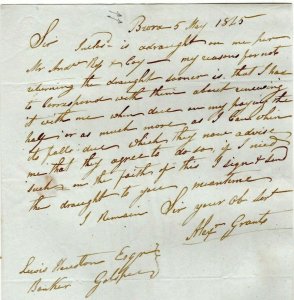 Brora 5 May 1845
Sir Inclosed is a draught on me per
Mr Andw Ross & Coy – my reasons for not
returning the draught sooner is, that I had
to correspond with them about renewing
it with me when due on my paying the
half or as much more as I can when
it falls due which they now advise
me that they agree to do so if I need
such – on the faith of this I sign & send
the draught to you meantime
I Remain Sir your Ob Sert
Alexr Grant
Lewis Houston Esqr
Banker Golspie